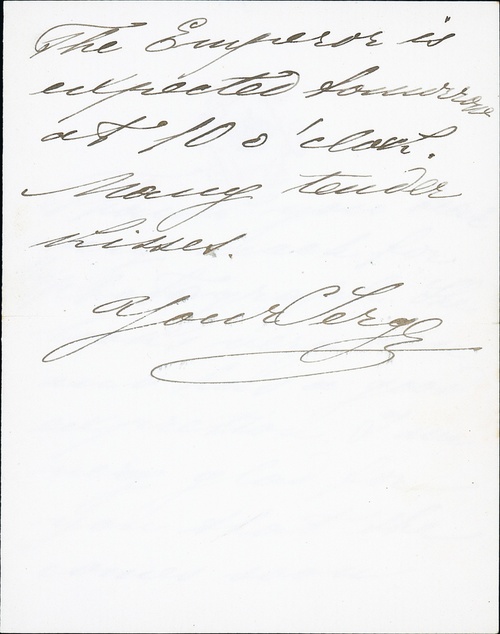 The Emperor is
expected tomorrow
at 10 o'clock.
Many tender
kisses.
Your Serge